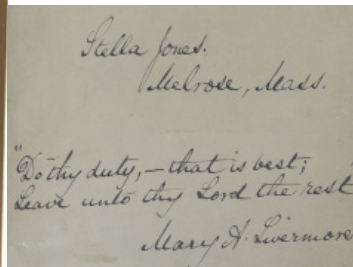 Stella Jones.
Melrose, Mass.
"Do thy duty, — that is best;
Leave unto thy Lord the rest
Mary A. Livermore